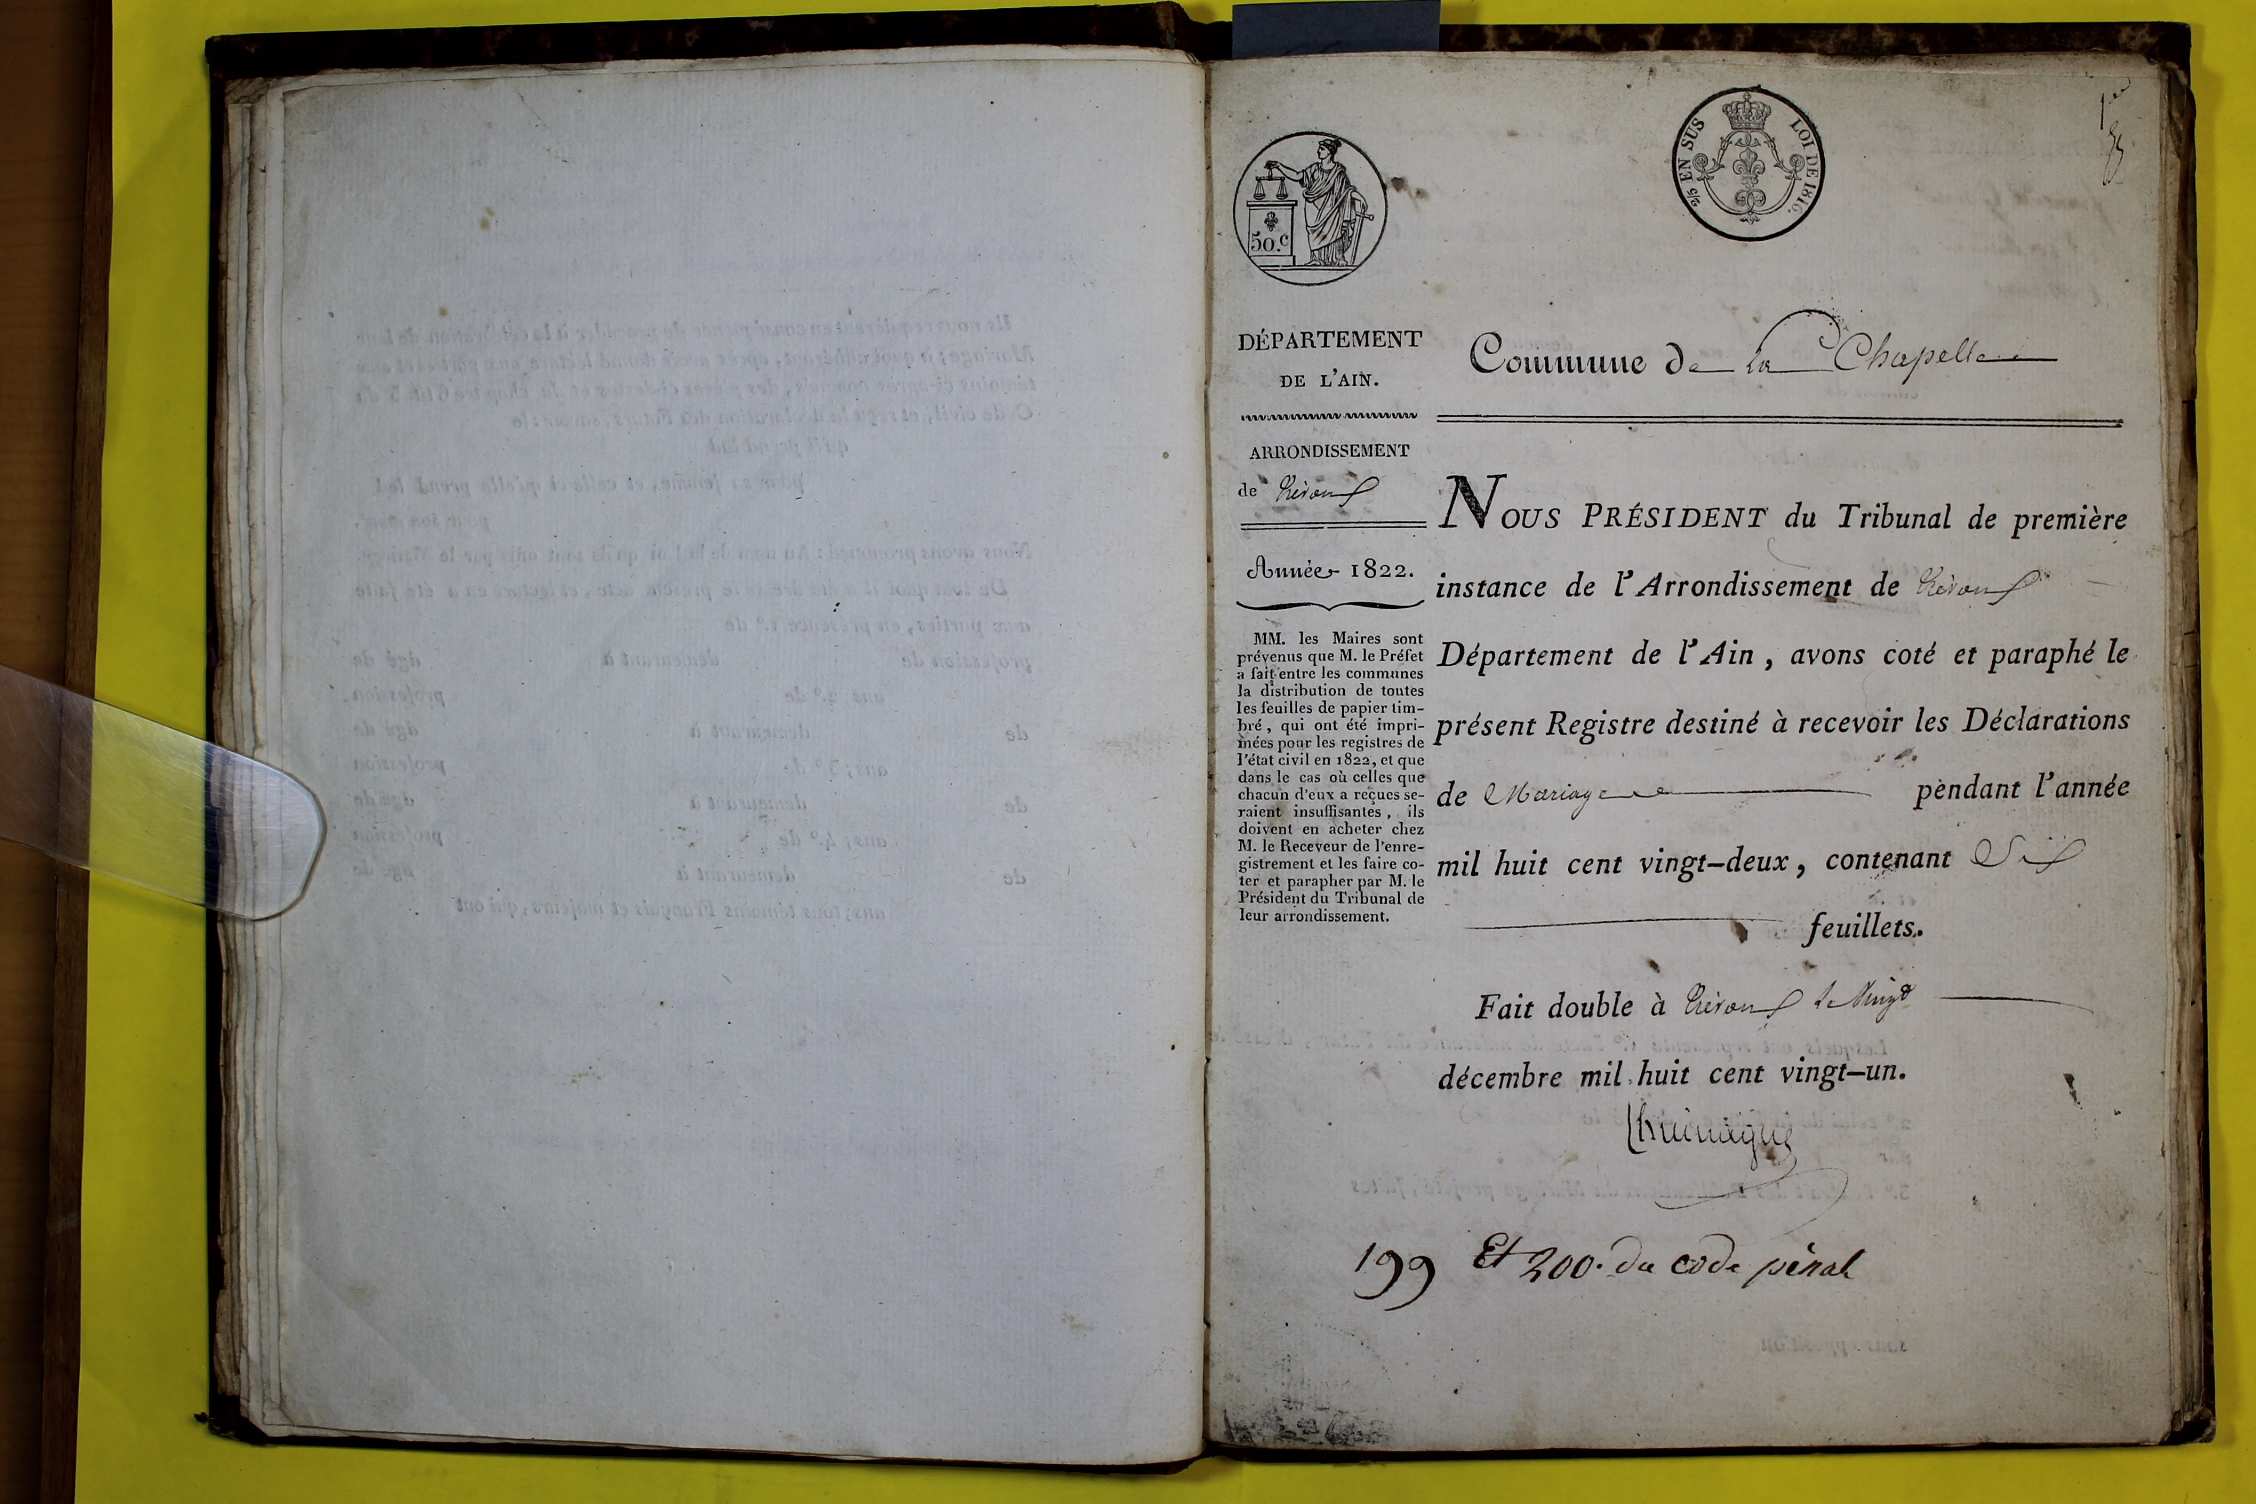 1er
2/5 EN SUS LOI DE 1816.
50.c
DÉPARTEMENT
DE L'AIN.
ARRONDISSEMENT
de Trévoux
Année 1822.
MM. les Maires sont
prévenus que M. le Préfet
a fait entre les communes
la distribution de toutes
les feuilles de papier tim-
bré, qui ont été impri-
mées pour les registres de
l'état civil en 1822, et que
dans le cas où celles que
chacun d'eux a reçues se-
raient insuffisantes, ils
doivent en acheter chez
M. le Receveur de l'enre-
gistrement et les faire co-
ter et parapher par M. le
Président du Tribunal de
leur arrondissement.
Commune de La Chapelle
NOUS PRÉSIDENT du Tribunal de première
instance de l'Arrondissement de Trévoux
Département de l'Ain, avons coté et paraphé le
présent Registre destiné à recevoir les Déclarations
de Mariage pendant l'année
mil huit cent vingt-deux, contenant Six
feuillets.
Fait double à Trévoux le Vingt
décembre mil huit cent vingt-un.
199 Et 200. du code pénal